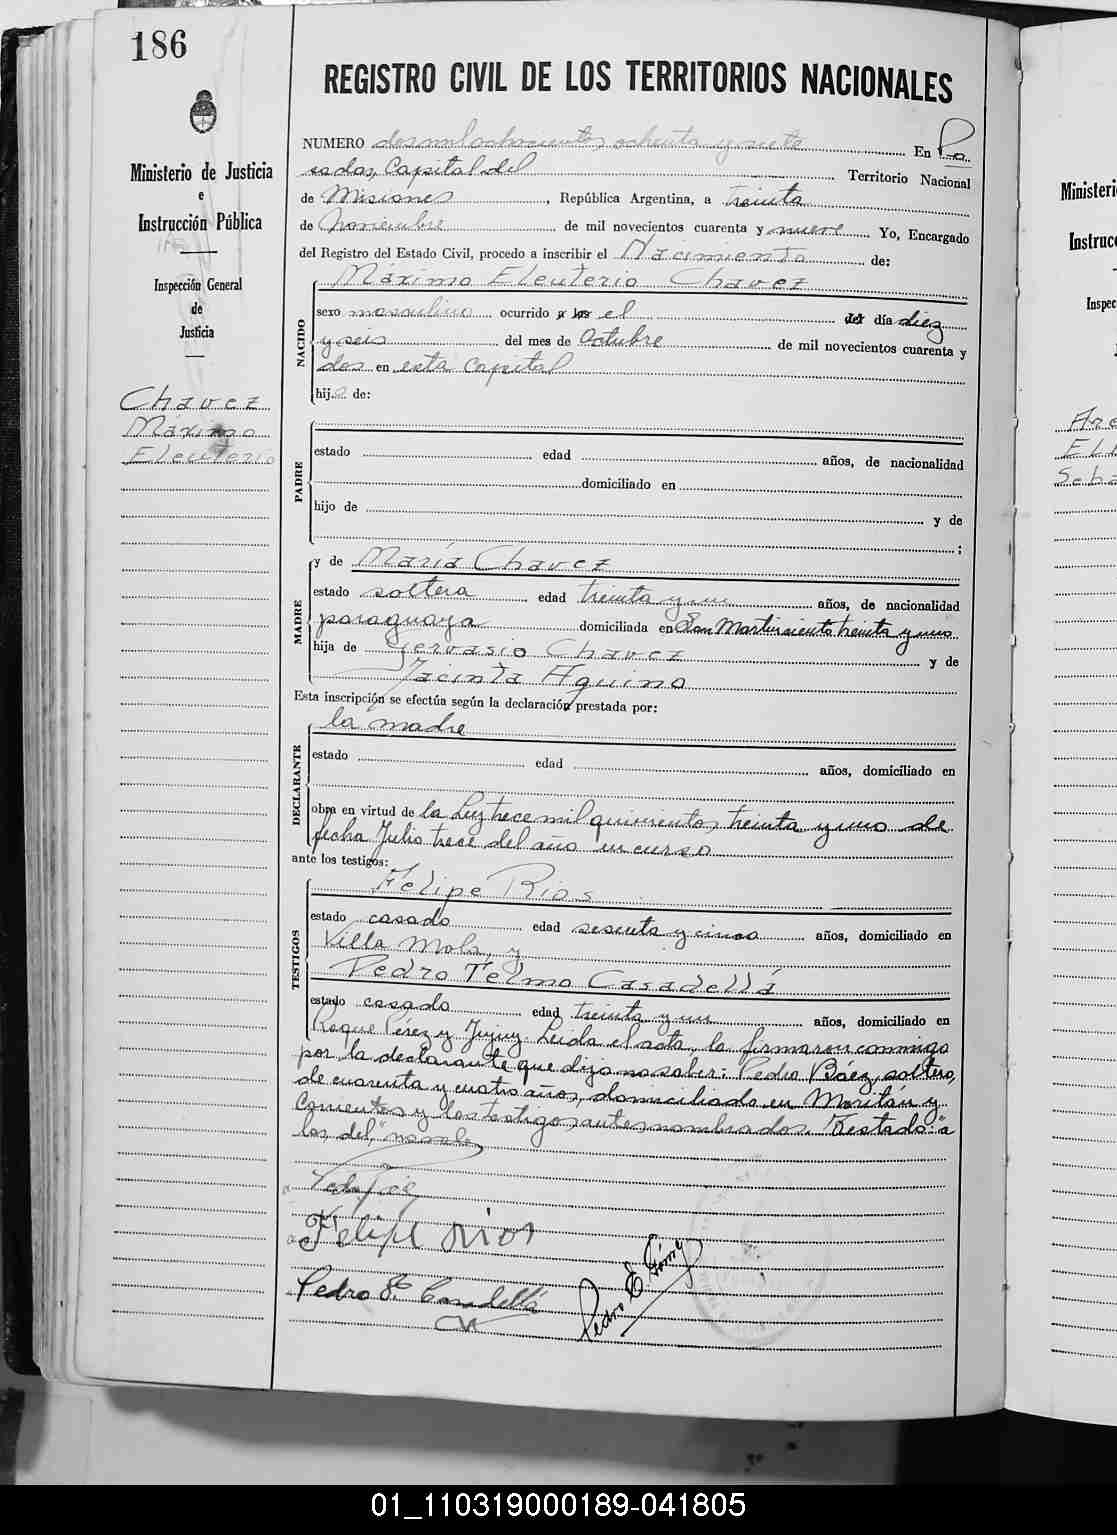 186
REGISTRO CIVIL DE LOS TERRITORIOS NACIONALES
Ministerio de Justicia
e
Instrucción Pública
Inspección General
de
Justicia
Chavez
Máximo
Eleuterio
NUMERO dos mil ochocientos ochenta y siete En Po
sadas, Capital del Territorio Nacional
de Misiones, República Argentina, a treinta
de Noviembre de mil novecientos cuarenta y nueve Yo, Encargado
del Registro del Estado Civil, procedo a inscribir el Nacimiento de:
Máximo Eleuterio Chavez
NACIDO
sexo masculino ocurrido a las el del día diez
y seis del mes de Octubre de mil novecientos cuarenta y
dos en esta capital
hijo de:
PADRE
estado edad años, de nacionalidad
domiciliado en
hijo de y de
;
MADRE
y de María Chavez
estado soltera edad treinta y un años, de nacionalidad
paraguaya domiciliada en San Martin ciento treinta y uno
hija de Gervasio Chavez y de
Jacinta Aquino
Esta inscripción se efectúa según la declaración prestada por:
la madre
DECLARANTE
estado edad años, domiciliado en
obra en virtud de la Ley trece mil quinientos treinta y uno de
fecha Julio trece del año en curso
ante los testigos:
TESTIGOS
Felipe Rios
estado casado edad sesenta y cinco años, domiciliado en
Villa Mola, y
Pedro Telmo Casadellá
estado casado edad treinta y un años, domiciliado en
Roque Perez y Jujuy. Leida el acta, la firmaron conmigo
por la declarante que dijo no saber: Pedro Báez, soltero,
de cuarenta y cuatro años, domiciliado en Moritán y
Corrientes y los testigos antes nombrados. Testado: "a
las, del," no vale
Felipe Rios
Pedro E. Gómez
Pedro T. Casadellá
Ministeri
Instrucc
Inspec
Are
Seba
01_110319000189-041805